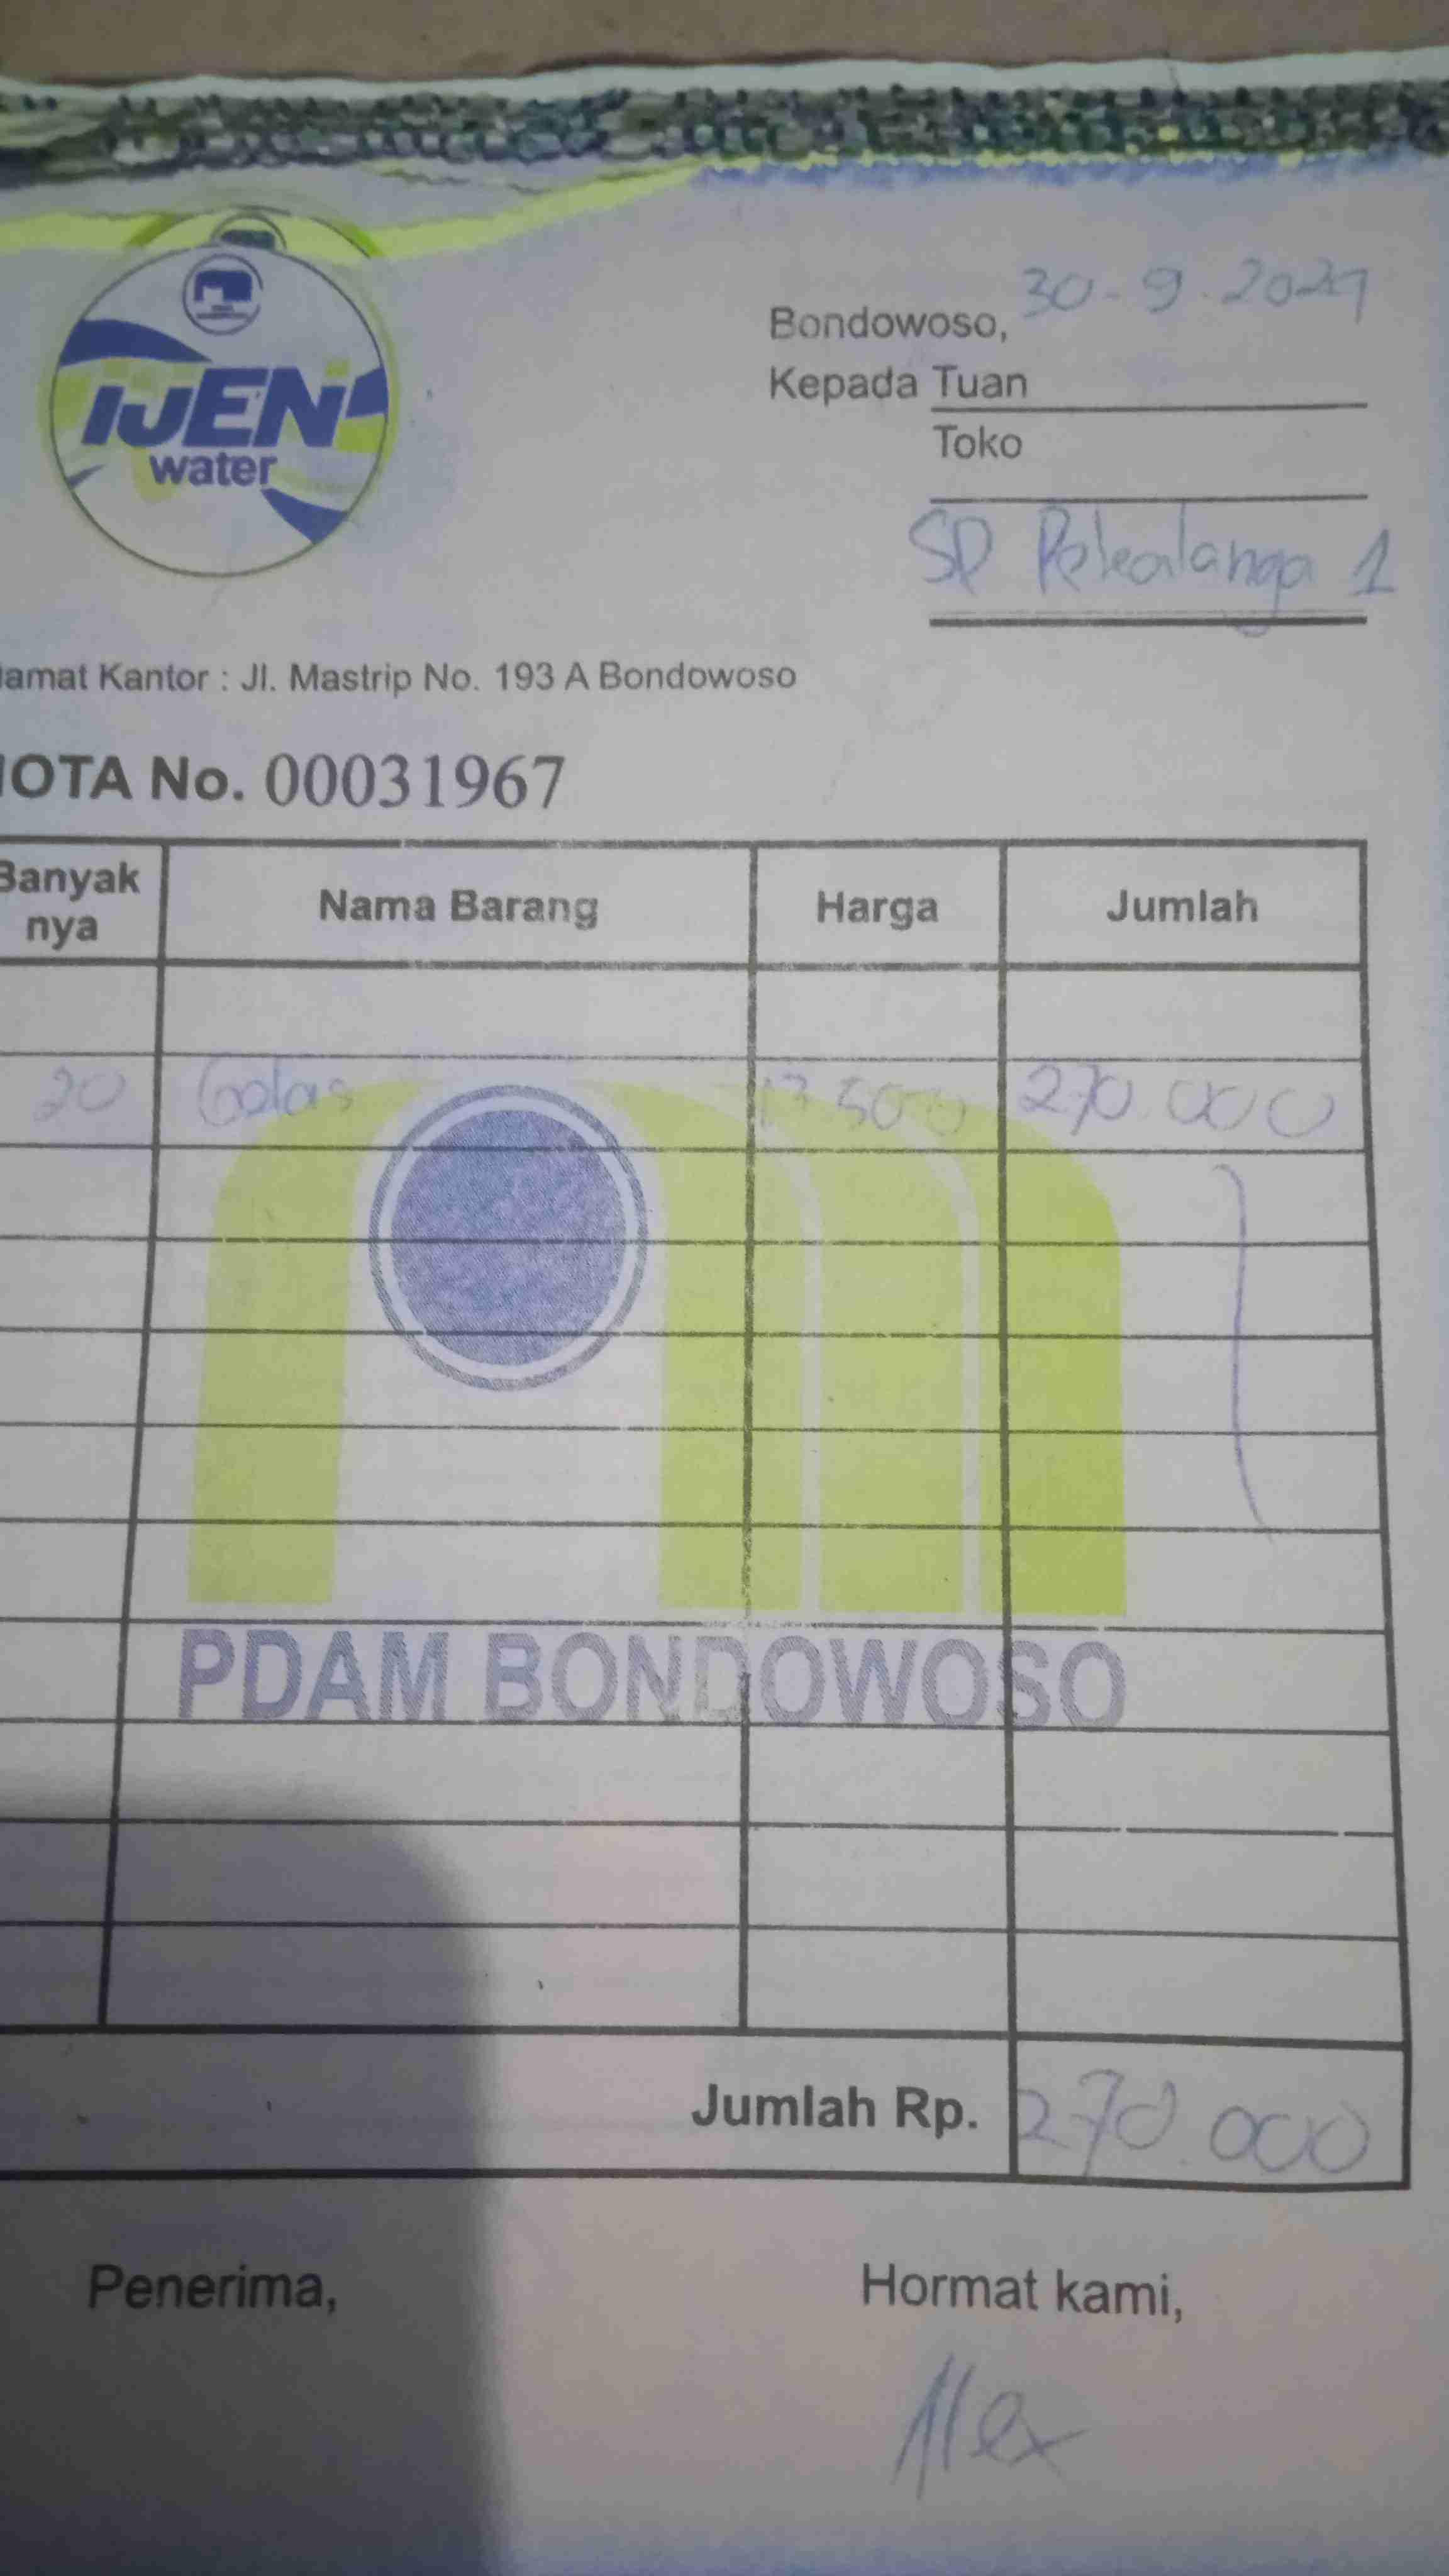 IJEN
water
Bondowoso, 30-9-2024
Kepada Tuan
Toko
SD Pekalangan 1
lamat Kantor : Jl. Mastrip No. 193 A Bondowoso
NOTA No. 00031967
Banyak nya Nama Barang Harga Jumlah
20 Gelas 13.500 270.000
PDAM BONDOWOSO
Jumlah Rp. 270.000
Penerima, Hormat kami,
Alex